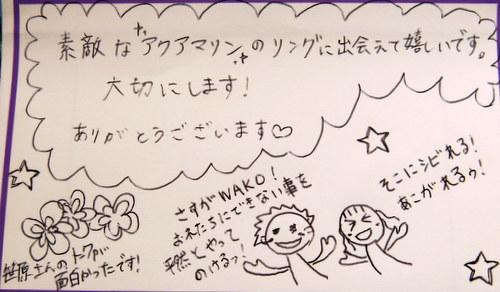 素敵なアクアマリンのリングに出会えて嬉しいです。
大切にします!
ありがとうございます♡
さすがWAKO!
おれたちにできない事を
平然とやって
のけるッ!
そこにシビれる!
あこがれるゥ!
笹原さんのトークが
面白かったです!